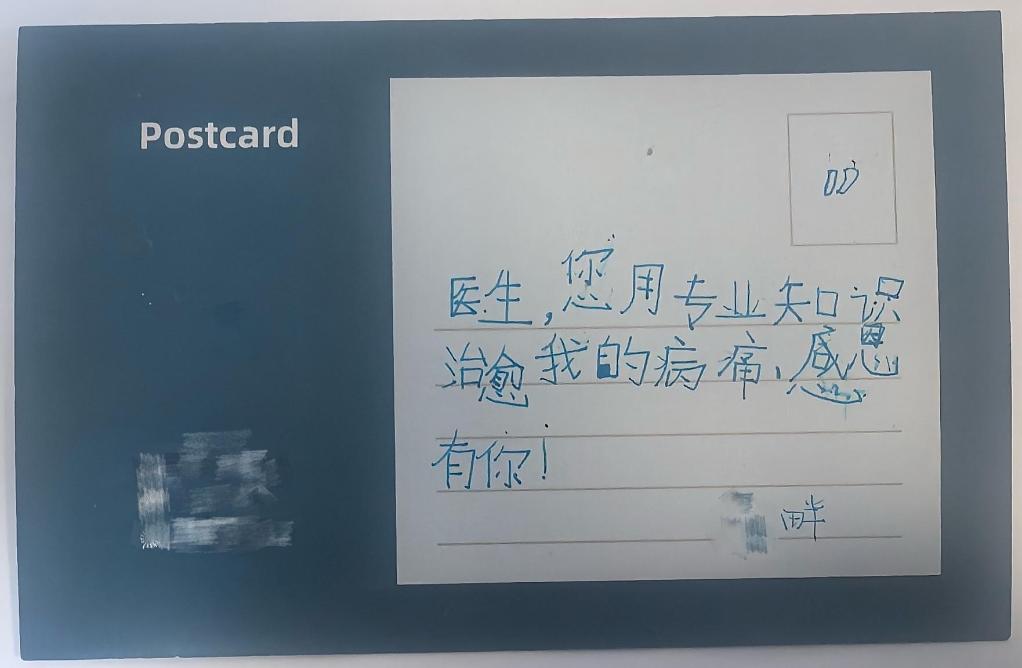 Postcard
医生,您用专业知识
治愈我的病痛、感恩
有你!
畔